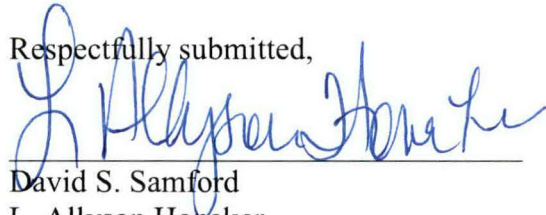 Respectfully submitted,
L Allyson Honaker
David S. Samford
L. Allyson Honaker